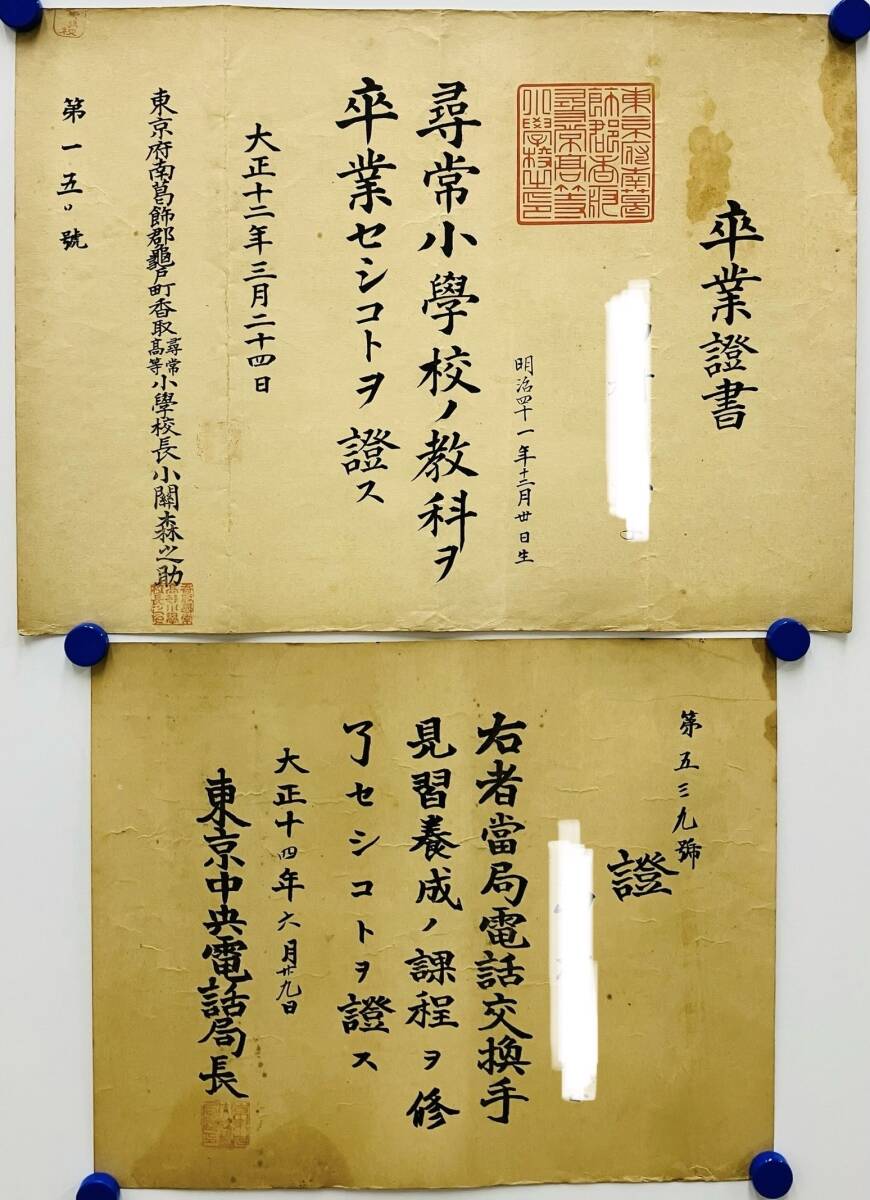 卒業證書
東京府南葛
飾郡香取
尋常高等
小學校之印
明治四十一年十二月卅日生
尋常小學校ノ教科ヲ
卒業セシコトヲ證ス
大正十二年三月二十四日
東京府南葛飾郡龜戸町香取尋常高等小學校長小關森之助
第一五〇號
第五三九號
證
右者當局電話交換手
見習養成ノ課程ヲ修
了セシコトヲ證ス
大正十四年六月廿九日
東京中央電話局長